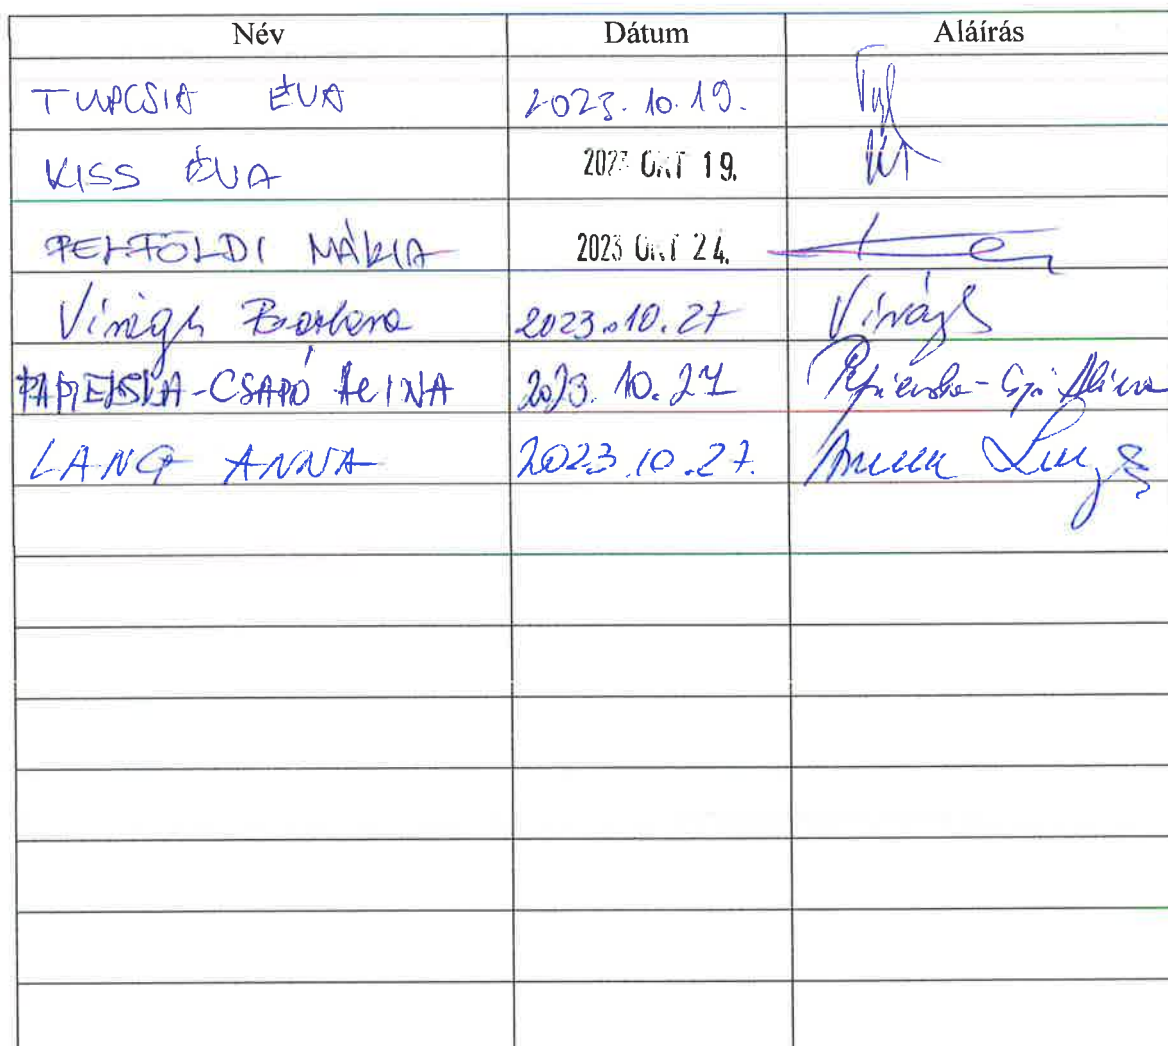 Név Dátum Aláírás
TUPCSIA ÉVA 2023. 10. 19.
KISS ÉVA 2023 OKT 19.
PELFÖLDI MÁRIA 2023 OKT 24.
Virágh Barbara 2023.10.27 Virágh
PAPIEŃSKA-CSAPÓ ALINA 2023. 10. 27
LANG ANNA 2023.10.27. Anna Lang